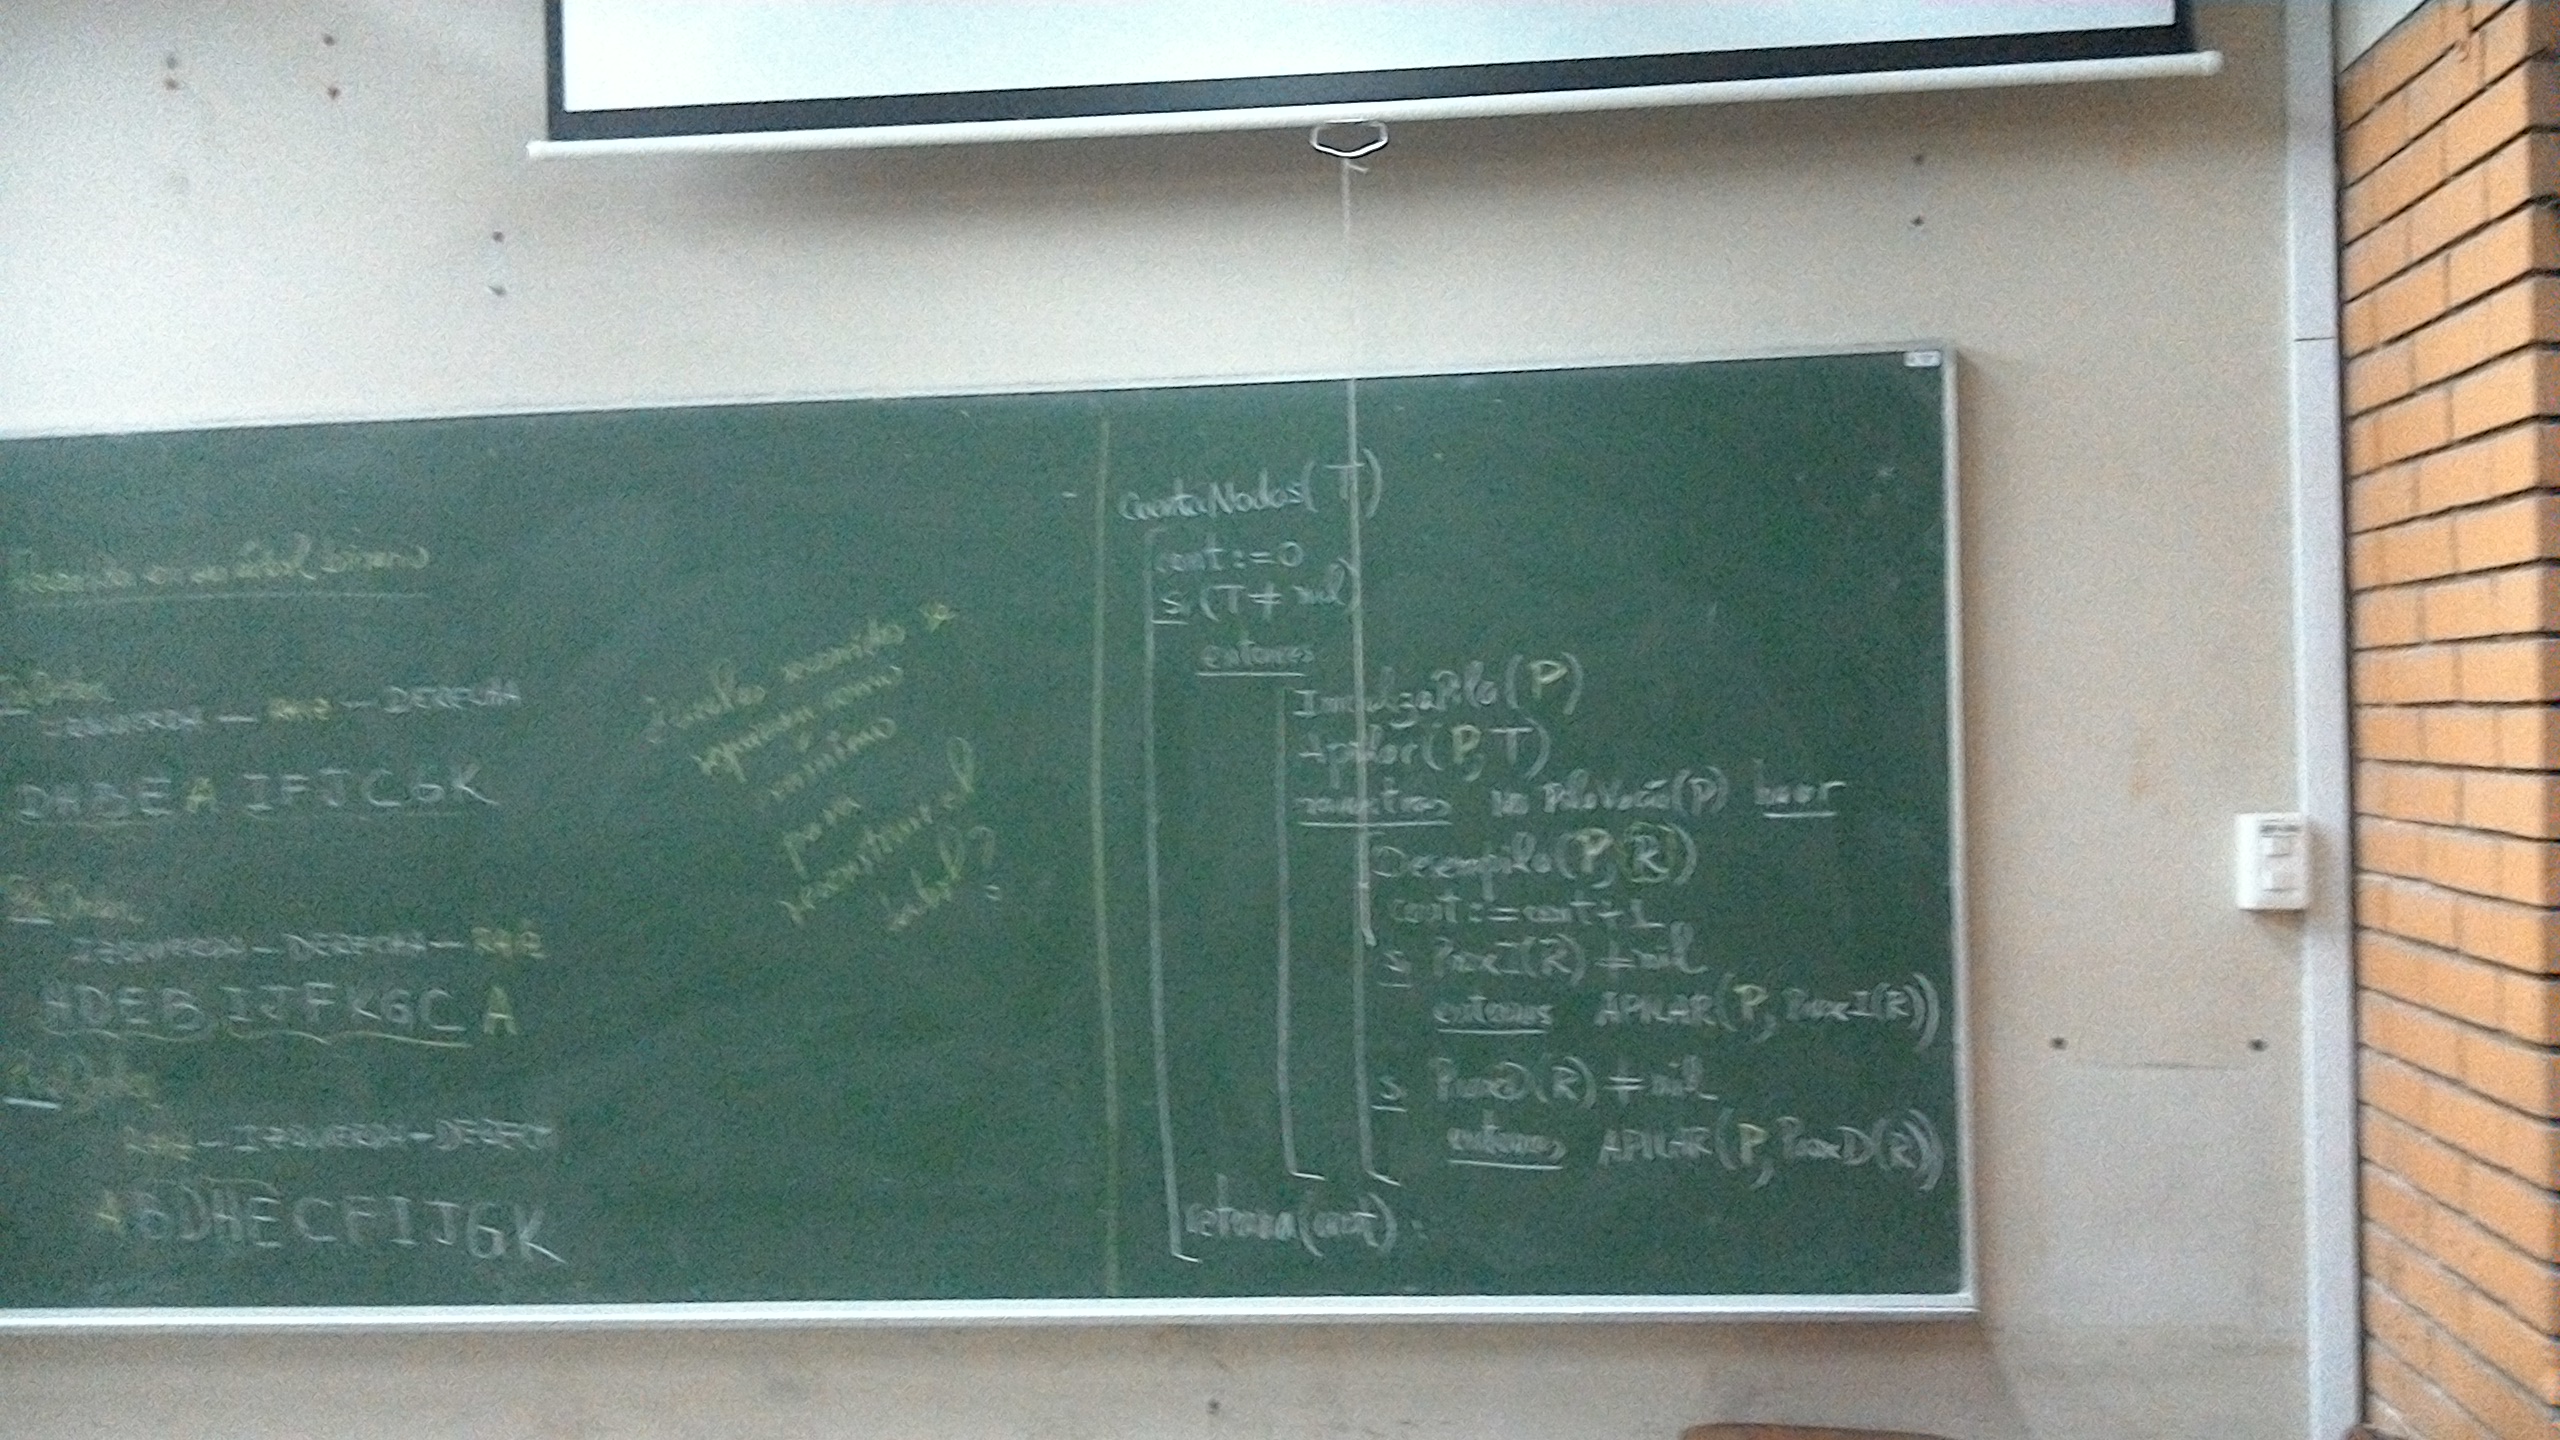 IZQUIERDA - RAIZ - DERECHA
DHBEA IFJCGK
IZQUIERDA - DERECHA - RAIZ
HDEB IJFKGC A
RAIZ - IZQUIERDA - DERECH
ABDHECFIJGK
¿Cuales recorridos se
requieren como
mínimo
para
reconstruir el
árbol?
CuentaNodos(T)
cont := 0
si (T ≠ nil)
entonces
InicializaPila(P)
Apilar(P, T)
mientras no PilaVacia(P) hacer
Desempila(P, R)
cont := cont + 1
si ProxI(R) ≠ nil
entonces APILAR(P, ProxI(R))
si ProxD(R) ≠ nil
entonces APILAR(P, ProxD(R))
retorna(cont).